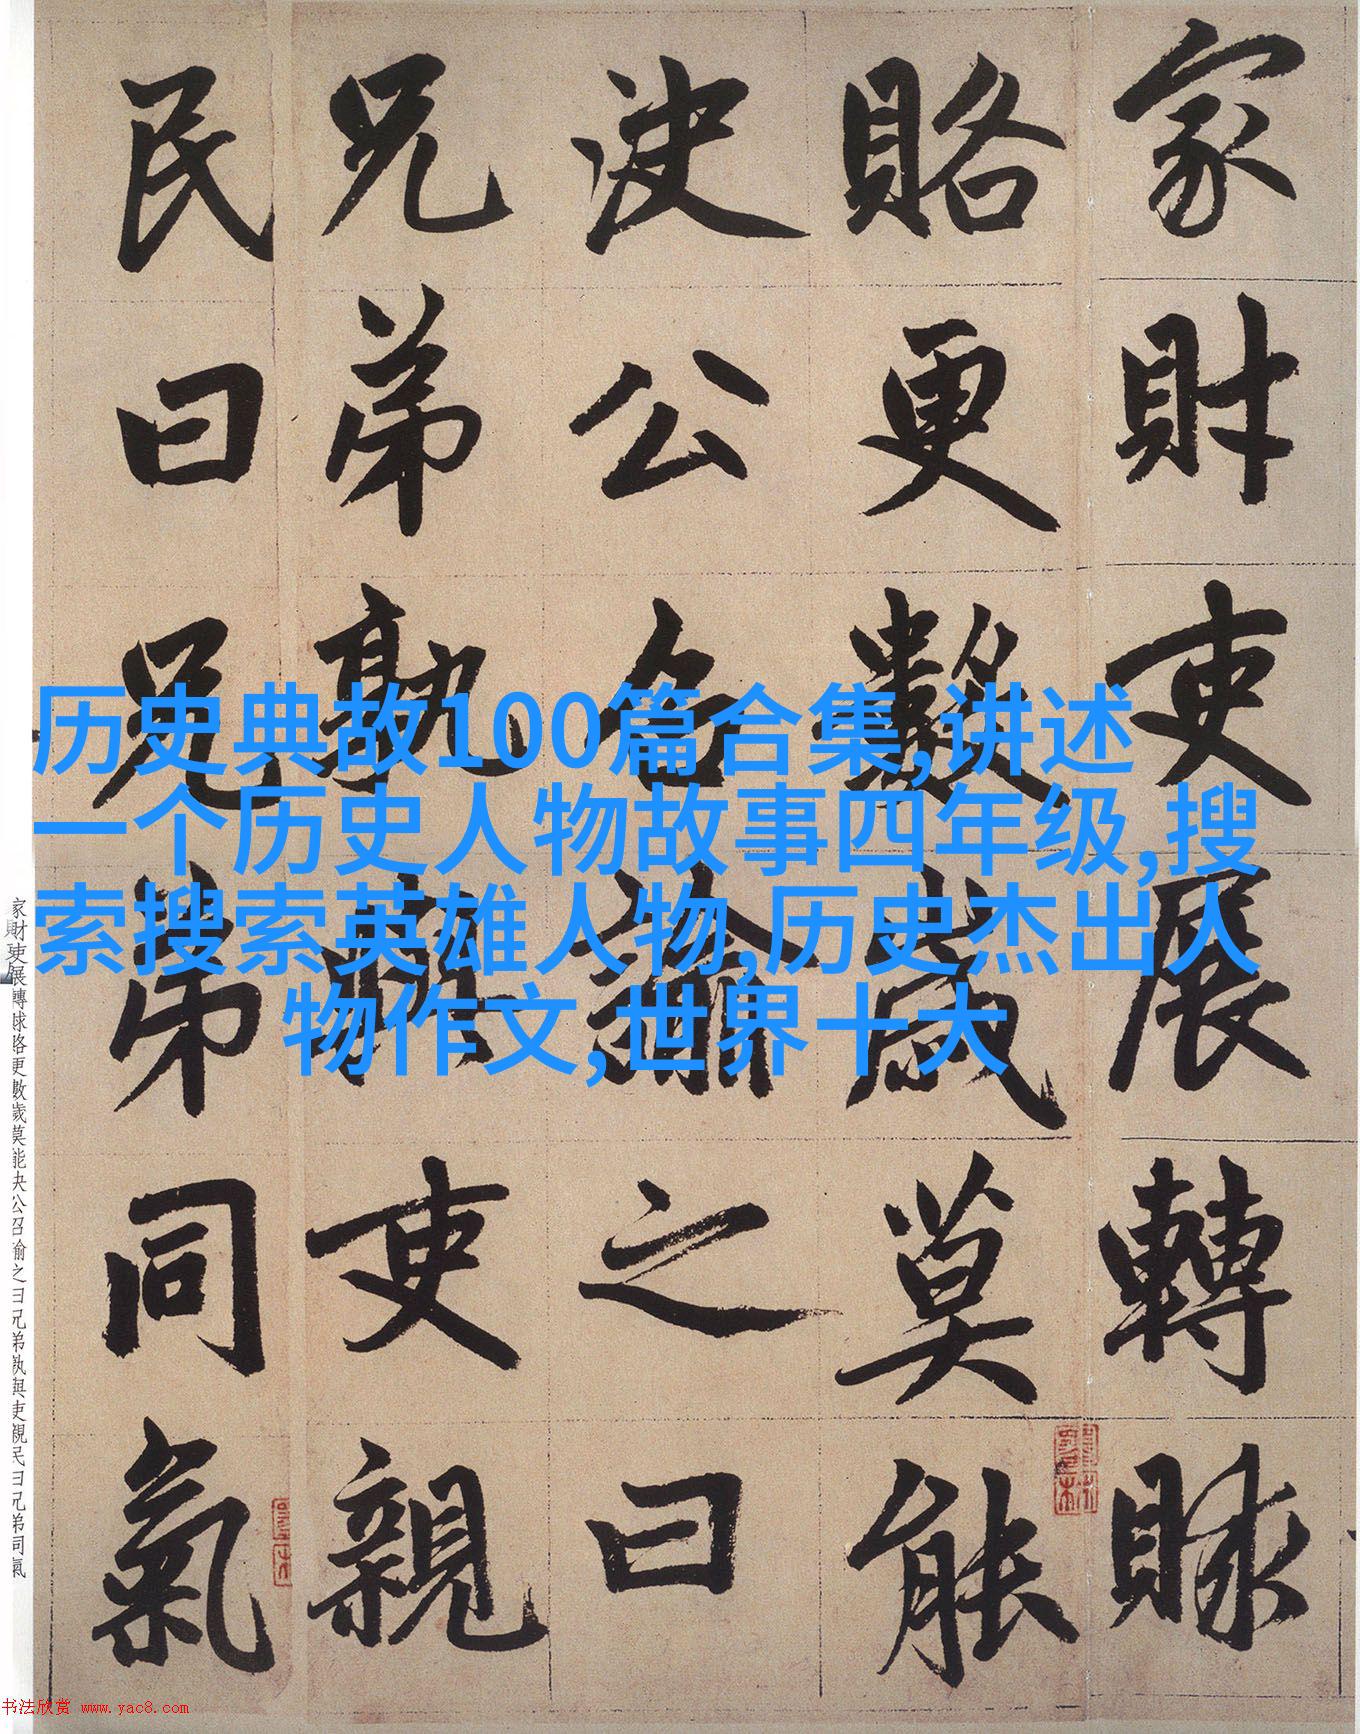 家財吏展轉賕
賂更數歲莫能
決公召諭之曰
兄弟孰與吏親
民曰兄弟同氣
历史典故100篇合集,讲述
一个历史人物故事四年级,搜
索搜索英雄人物,历史杰出人
物作文,世界十大
家財吏展轉賕賂更數歲莫能決公召諭之曰兄弟孰與吏親民曰兄弟同氣
书法欣赏 www.yac8.com